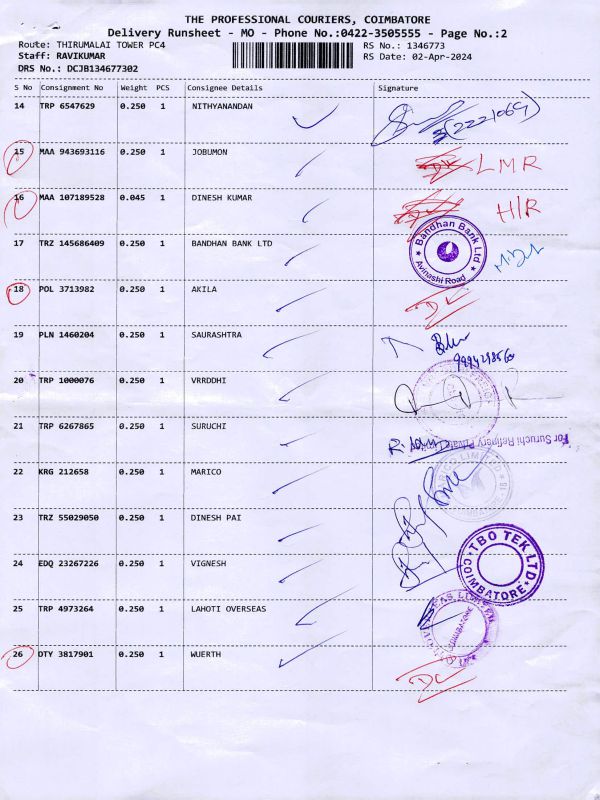 THE PROFESSIONAL COURIERS, COIMBATORE
Delivery Runsheet - MO - Phone No.:0422-3505555 - Page No.:2
Route: THIRUMALAI TOWER PC4 RS No.: 1346773
Staff: RAVIKUMAR RS Date: 02-Apr-2024
DRS No.: DCJB134677302
S No Consignment No Weight PCS Consignee Details Signature
14 TRP 6547629 0.250 1 NITHYANANDAN
15 MAA 943693116 0.250 1 JOBUMON LMR
16 MAA 107189528 0.045 1 DINESH KUMAR H/R
17 TRZ 145686409 0.250 1 BANDHAN BANK LTD
Bandhan Bank Ltd
Avinashi Road
18 POL 3713982 0.250 1 AKILA DL
19 PLN 1460204 0.250 1 SAURASHTRA
20 TRP 1000076 0.250 1 VRRDDHI
21 TRP 6267865 0.250 1 SURUCHI
For Suruchi Refinery Private Limited
22 KRG 212658 0.250 1 MARICO
23 TRZ 55029050 0.250 1 DINESH PAI
24 EDQ 23267226 0.250 1 VIGNESH
TBO TEK LTD.
COIMBATORE
25 TRP 4973264 0.250 1 LAHOTI OVERSEAS
26 DTY 3817901 0.250 1 WUERTH DL